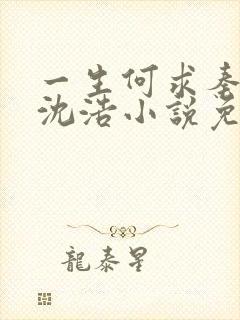 一生何求秦
沈浩小説免
龍泰星